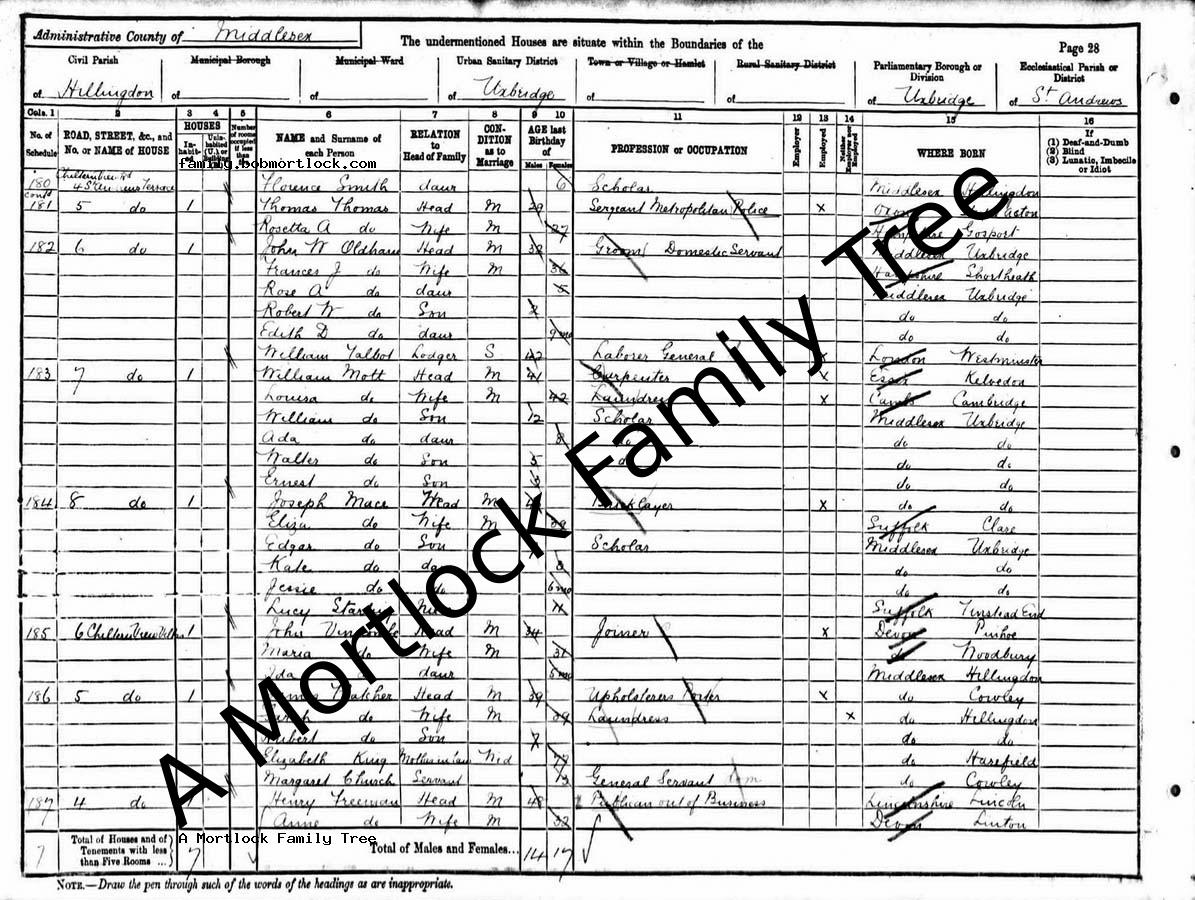 Administrative County of Middlesex
The undermentioned Houses are situate within the Boundaries of the
Page 28
Civil Parish of Hillingdon
Municipal Borough of
Municipal Ward of
Urban Sanitary District of Uxbridge
Town or Village or Hamlet of
Rural Sanitary District of
Parliamentary Borough or Division of Uxbridge
Ecclesiastical Parish or District of St Andrews
Cols. 1 2 3 4 5 6 7 8 9 10 11 12 13 14 15 16
No. of Schedule
ROAD, STREET, &c., and No. or NAME of HOUSE
HOUSES
In-habit-ed
Number of rooms occupied if less than
NAME and Surname of each Person
RELATION to Head of Family
CON-DITION as to Marriage
AGE last Birthday of
Males Females
PROFESSION or OCCUPATION
Employer
Employed
Neither Employer nor Employed
WHERE BORN
If (1) Deaf-and-Dumb (2) Blind (3) Lunatic, Imbecile or Idiot
faming.bobmortlock.com
180 Florence Smith daur 6 Scholar Middlesex Hillingdon
181 5 do 1 Thomas Thomas Head M 29 Sergeant Metropolitan Police x
Rosetta A do Wife M 27 Hampshire Gosport
182 6 do 1 John W Oldham Head M 32 Groom Domestic Servant Middlesex Uxbridge
Frances J do Wife M 36 Hampshire Shortheath
Rose A do daur 5 Middlesex Uxbridge
Robert W do Son 2 do do
Edith D do daur 9 mo do do
William Talbot Lodger S 42 Laborer General x London Westminster
183 7 do 1 William Mott Head M 41 Carpenter x Essex Kelvedon
Louisa do Wife M 42 Laundress x Cambs Cambridge
William do Son 12 Scholar Middlesex Uxbridge
Ada do daur 8 do do do
Walter do Son 5 do do do
Ernest do Son 3 do do
184 8 do 1 Joseph Mace Head M Bricklayer x do do
Eliza do Wife M Suffolk Clare
Edgar do Son Scholar Middlesex Uxbridge
Kate do do do
Jessie do do 6 mo do do
Lucy Suffolk
185 6 Chiltern View Villas 1 John Head M 34 Joiner x Devon Pinhoe
Maria do Wife M 31 do Woodbury
Ida do daur 5 mo Middlesex Hillingdon
186 5 do 1 Thatcher Head M 39 Upholsterers Porter x do Cowley
do Wife M 39 Laundress x do Hillingdon
Hubert do Son 7 do do
Elizabeth King Mother in law Wid 77 do Harefield
Margaret Church Servant 13 General Servant dom do Cowley
187 4 do Henry Freeman Head M 48 Publican out of Business Lincolnshire Lincoln
Anne do Wife M 32 Devon Linton
7 Total of Houses and of Tenements with less than Five Rooms ... 7
A Mortlock Family Tree
Total of Males and Females... 14 17
NOTE.—Draw the pen through such of the words of the headings as are inappropriate.
A Mortlock Family Tree